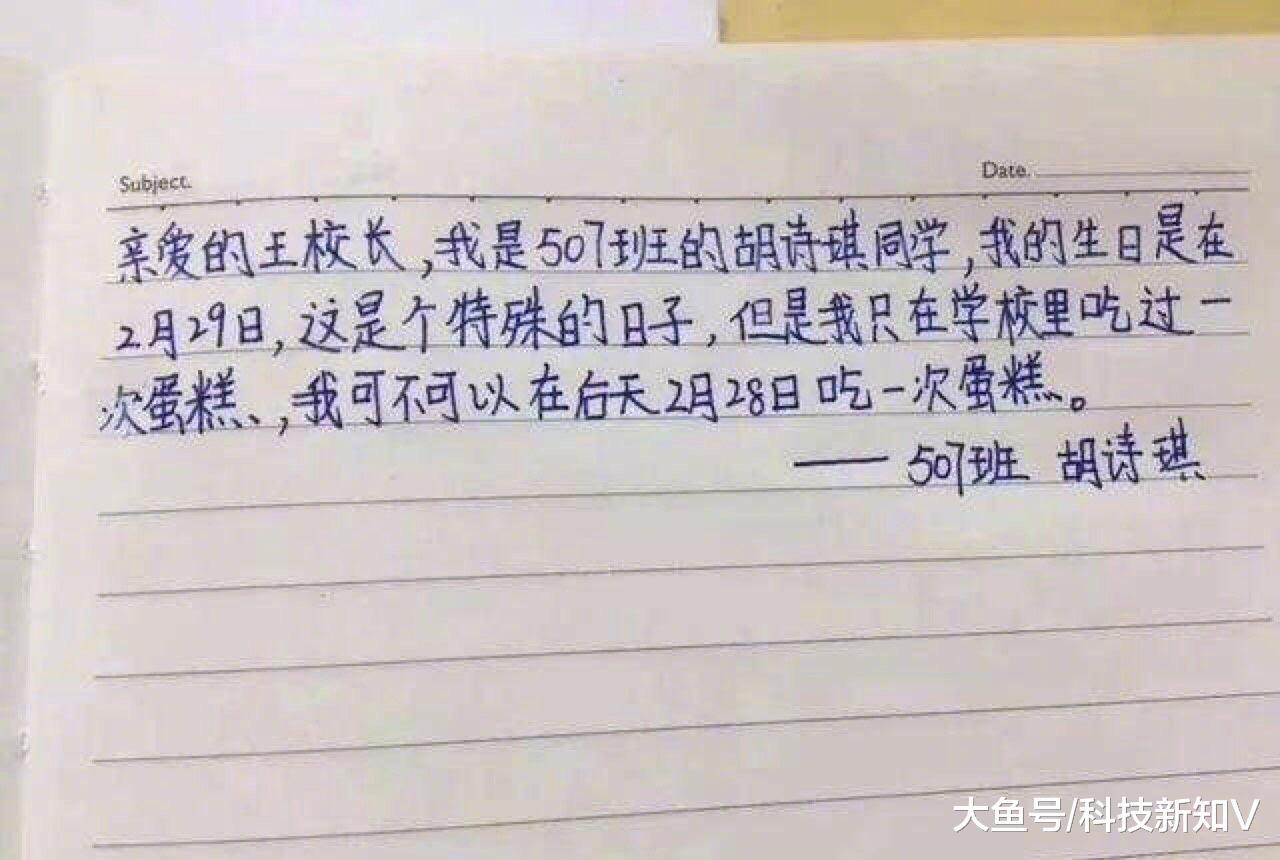 Subject.
Date.
亲爱的王校长,我是507班的胡诗琪同学,我的生日是在
2月29日,这是个特殊的日子,但是我只在学校里吃过一
次蛋糕、,我可不可以在后天2月28日吃一次蛋糕。
——507班 胡诗琪
大鱼号/科技新知V